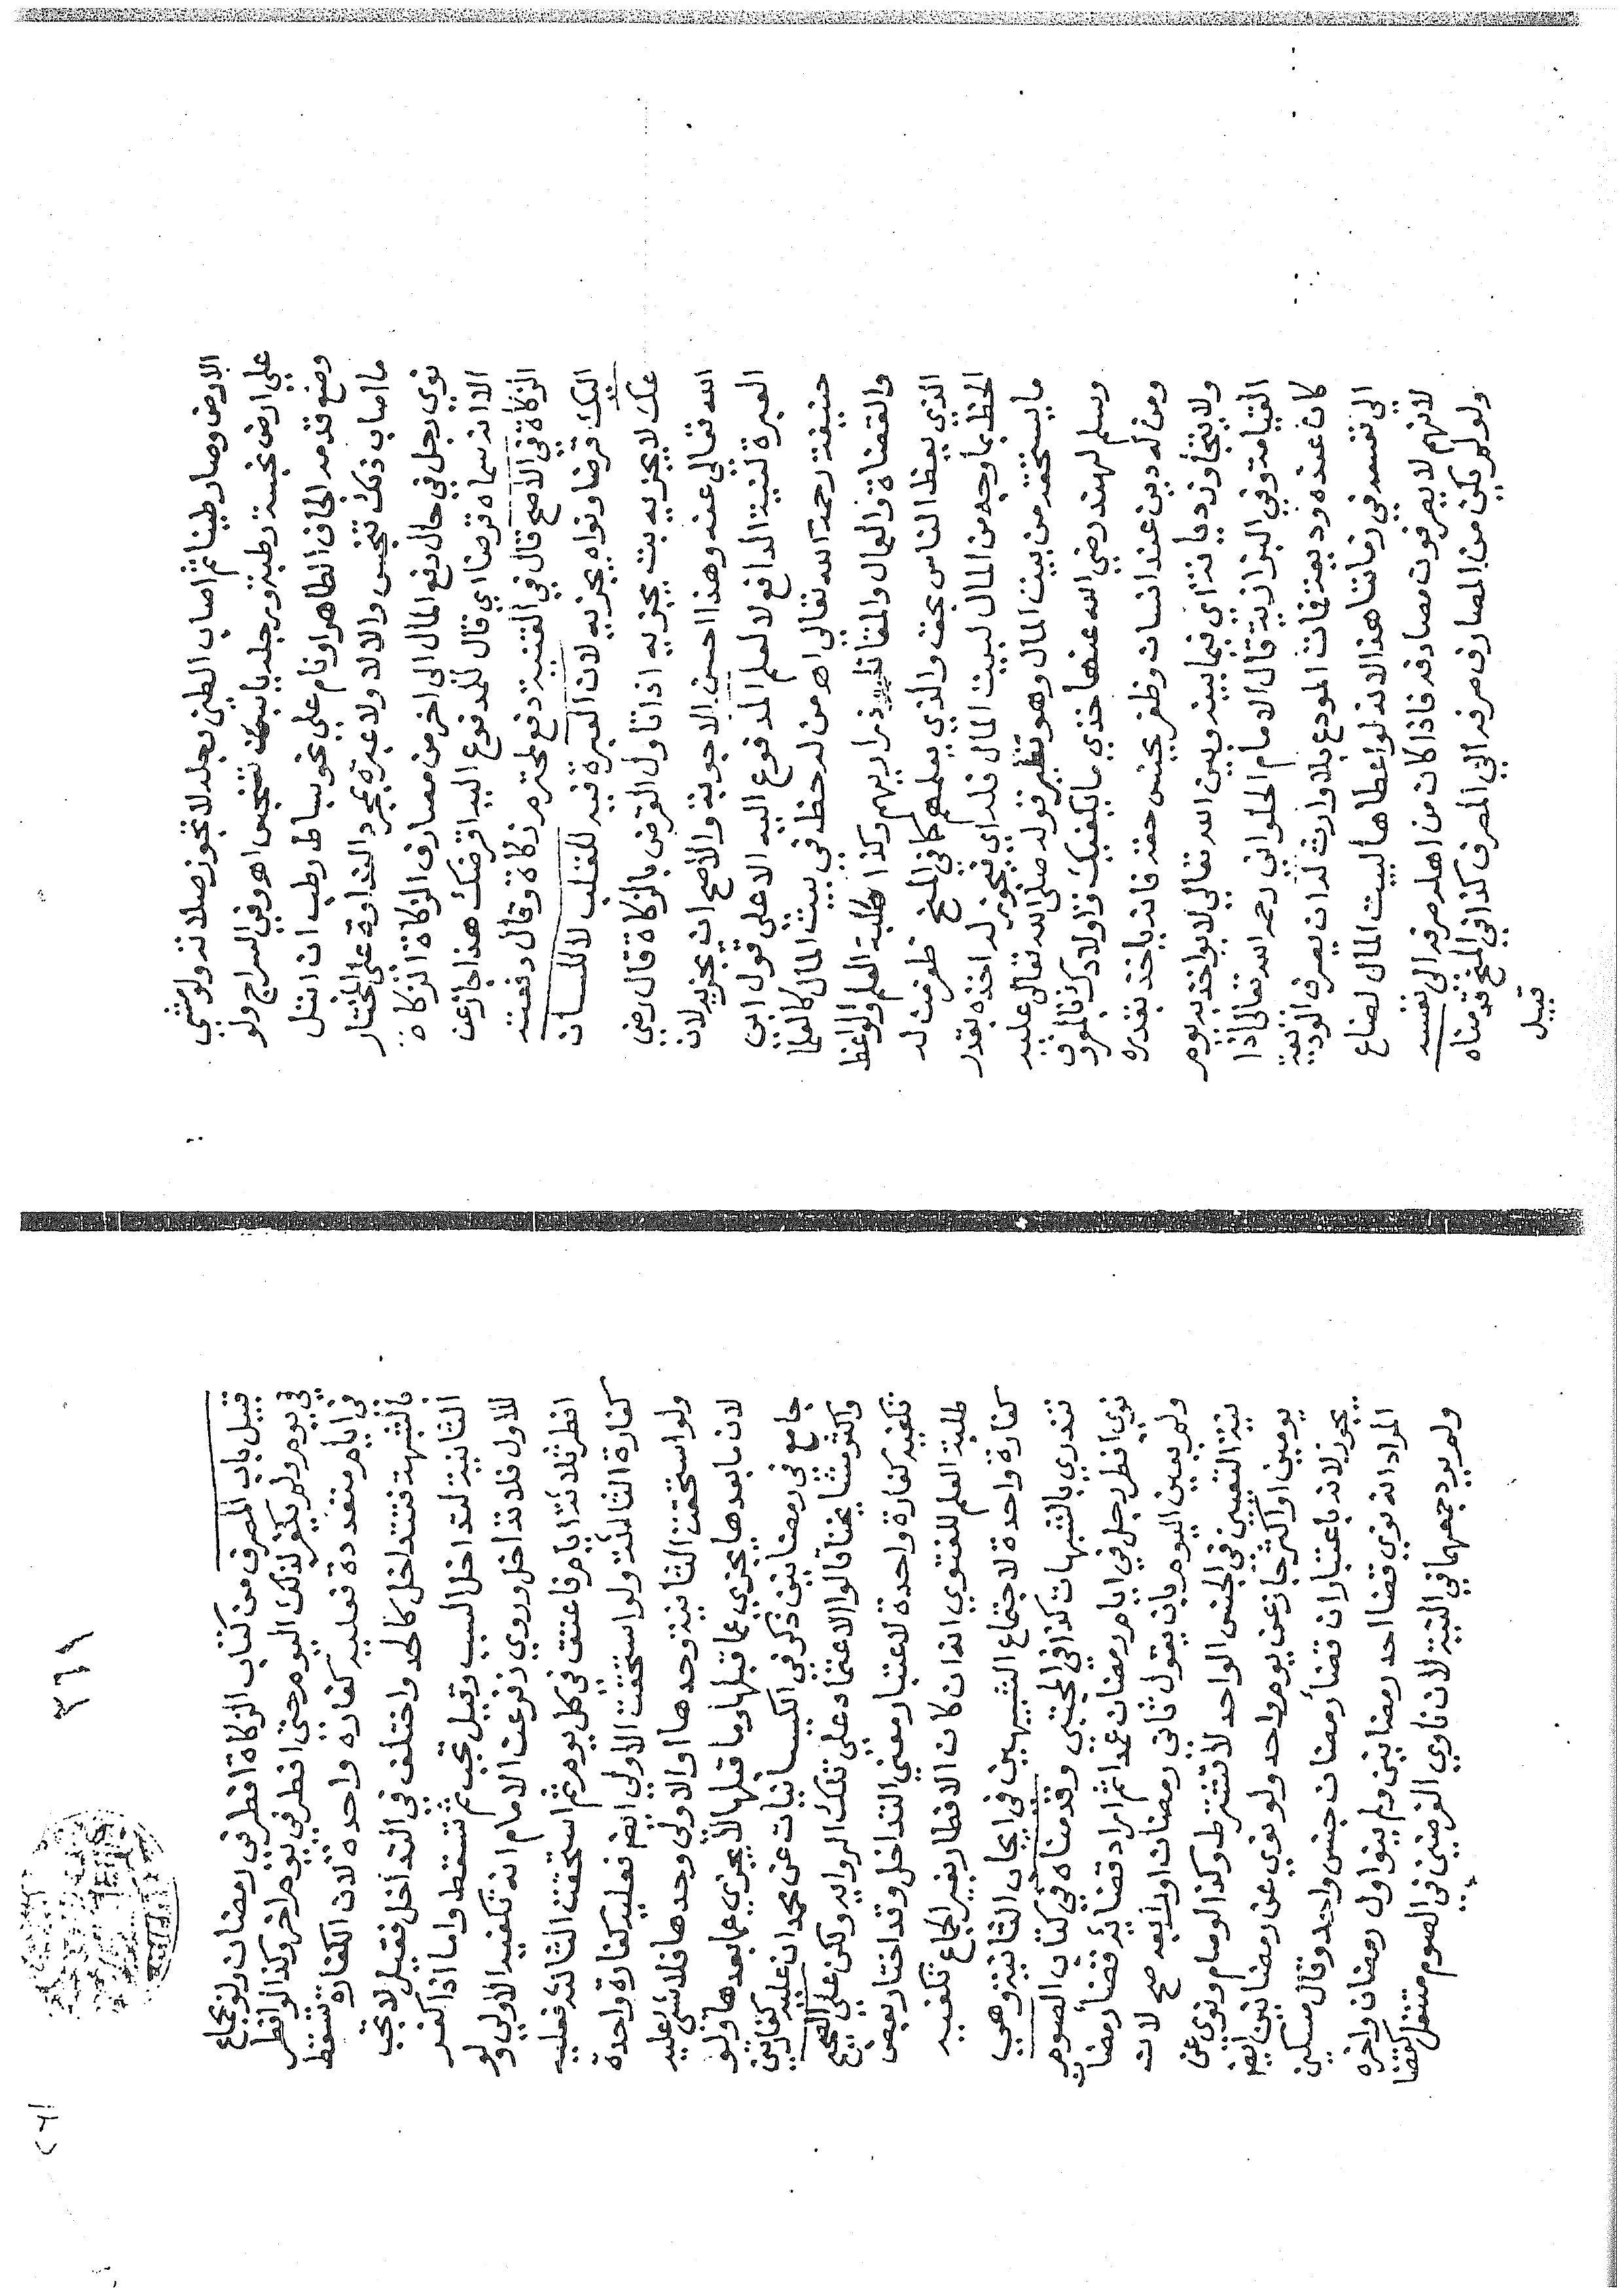 الارض وصار طينا ثم اصاب الطين نجلد لا تجوز صلاته ولو مشي
علي ارض نجسة رطبة ورجله يابسة تتنجس اهـ وفي السراج ولو
وضع قدمه الجاف الطاهر او نام علي نحو بساط رطب ان ابتل
ما اصاب ذلك تنجس والا لا ولا عبرة بمجرد النداوة علي المختار
نوي رجل في حال دفع المال الي اخر من مصارف الزكاة الزكاة
الا انه سماه قرضا اي قال للمدفوع اليه اقرضتك هذا جاز عن
الزكاة في الاصح قال في القنية دفع لمحترم زكاة وقال دفعته
اليك قرضا ونواه يجزيه لان العبرة فيه للقلب لا للسان
عك لا يجزيه بت يجزيه اذا تاول القرض بالزكاة قال رضي
الله تعالي عنه وهذا احسن الاجوبة والاصح ان يجزيه لان
العبرة لنية الدافع لا لعلم المدفوع اليه الا علي قول ابي
حنيفة رحمه الله تعالي اهـ من له حظ في بيت المال كالعلما
والقضاة والعمال والمقاتلة ذراريهم وكذا طلبة العلم والواعظ
الذي يعظ الناس بحق والذي يعلمهم كما في المنح ظفرت له
الحظ بما وجه من المال لبيت المال فله اي فيجوز له اخذه بقدر
ما يستحقه من بيت المال وهو نظير قوله صلي الله تعالي عليه
وسلم لهند رضي الله عنها خذي ما يكفيك واولادك بالمعروف
ومن له دين عند انسان وظفر بجنس حقه فانه ياخذ بقدره
ولا يتجاوز ديانة اي فيما بينه وبين الله تعالي لا يواخذ به يوم
القيامة وفي البزازية قال الامام الحلواني رحمه الله تعالي اذا
كان عنده وديعة فمات المودع بلا وارث له ان يصرف الوديعة
الي نفسه في زماننا هذا لانه لو اعطاها لبيت المال لضاع
لانهم لا يصرفون مصارفه فاذا كان من اهله صرفه الي نفسه
ولو لم يكن من المصارف صرفه الي المصرف كذا في المنح قدمناه
قبيل
٣٦٩
قبيل باب المصرف من كتاب الزكاة افطر في رمضان ولو بجماع
في يوم ولم يكفر لذلك اليوم حتي افطر في يوم اخر وكذا لو افطر
في ايام متعددة فعليه كفارة واحدة لان الكفارة تسقط
بالشبهة فتتداخل كالحد واختلف في التداخل فقيل لا تجب
الثانية لتداخل السبب وقيل تجب ثم تسقط واما اذا كفر
للاول فلا تداخل وروي زفر عن الامام انه تكفيه الاولي ولو
افطر ثلاثة ايام فاعتق في كل يوم ثم استحقت الثالثة فعليه
كفارة الثالثة ولو استحقت الاولي ايضا فعليه كفارة واحدة
ولو استحقت الثانية وحدها او الاولي وحدها فلا شي عليه
لان ما بعدها يجزي عما قبلها وما قبلها لا يجزي عما بعدها ولو
جامع في رمضانين ذكر في الكيسانيات عن محمد ان عليه كفارتين
واكثر مشايخنا قالوا الاعتماد علي تلك الرواية ولكن علي الصحيح
تكفيه كفارة واحدة لاعتبار معني التداخل وقد اختار بعض
طلبة العلم للفتوي انه ان كان الافطار بغير الجماع تكفيه
كفارة واحدة لاجتماع الشبهين في ايجاب الثانية وهي
تندري بالشبهات كذا في المجتبي وقدمناه في كتاب الصوم
نوي افطر رجل في ايام رمضان عمدا ثم اراد قضائه قضأ رمضان
ولم يعين اليوم بان يقول ثاني رمضان او رابعه صح لان
نية التعيين في الجنس الواحد لا تشترط وكذا لو صام ونوي عن
يومين او اكثر جاز عن يوم واحد ولو نوي عن رمضانين ايضا
يجوز لانه باعتبار ان قضأ رمضان جنس واحد وقال مسكين
المراد انه نوي قضا احد رمضانين ولم ينو اول رمضان واخره
ولم يرد جمعهما في النية لان ناوي الفرضين في الصوم متنفل كقضا